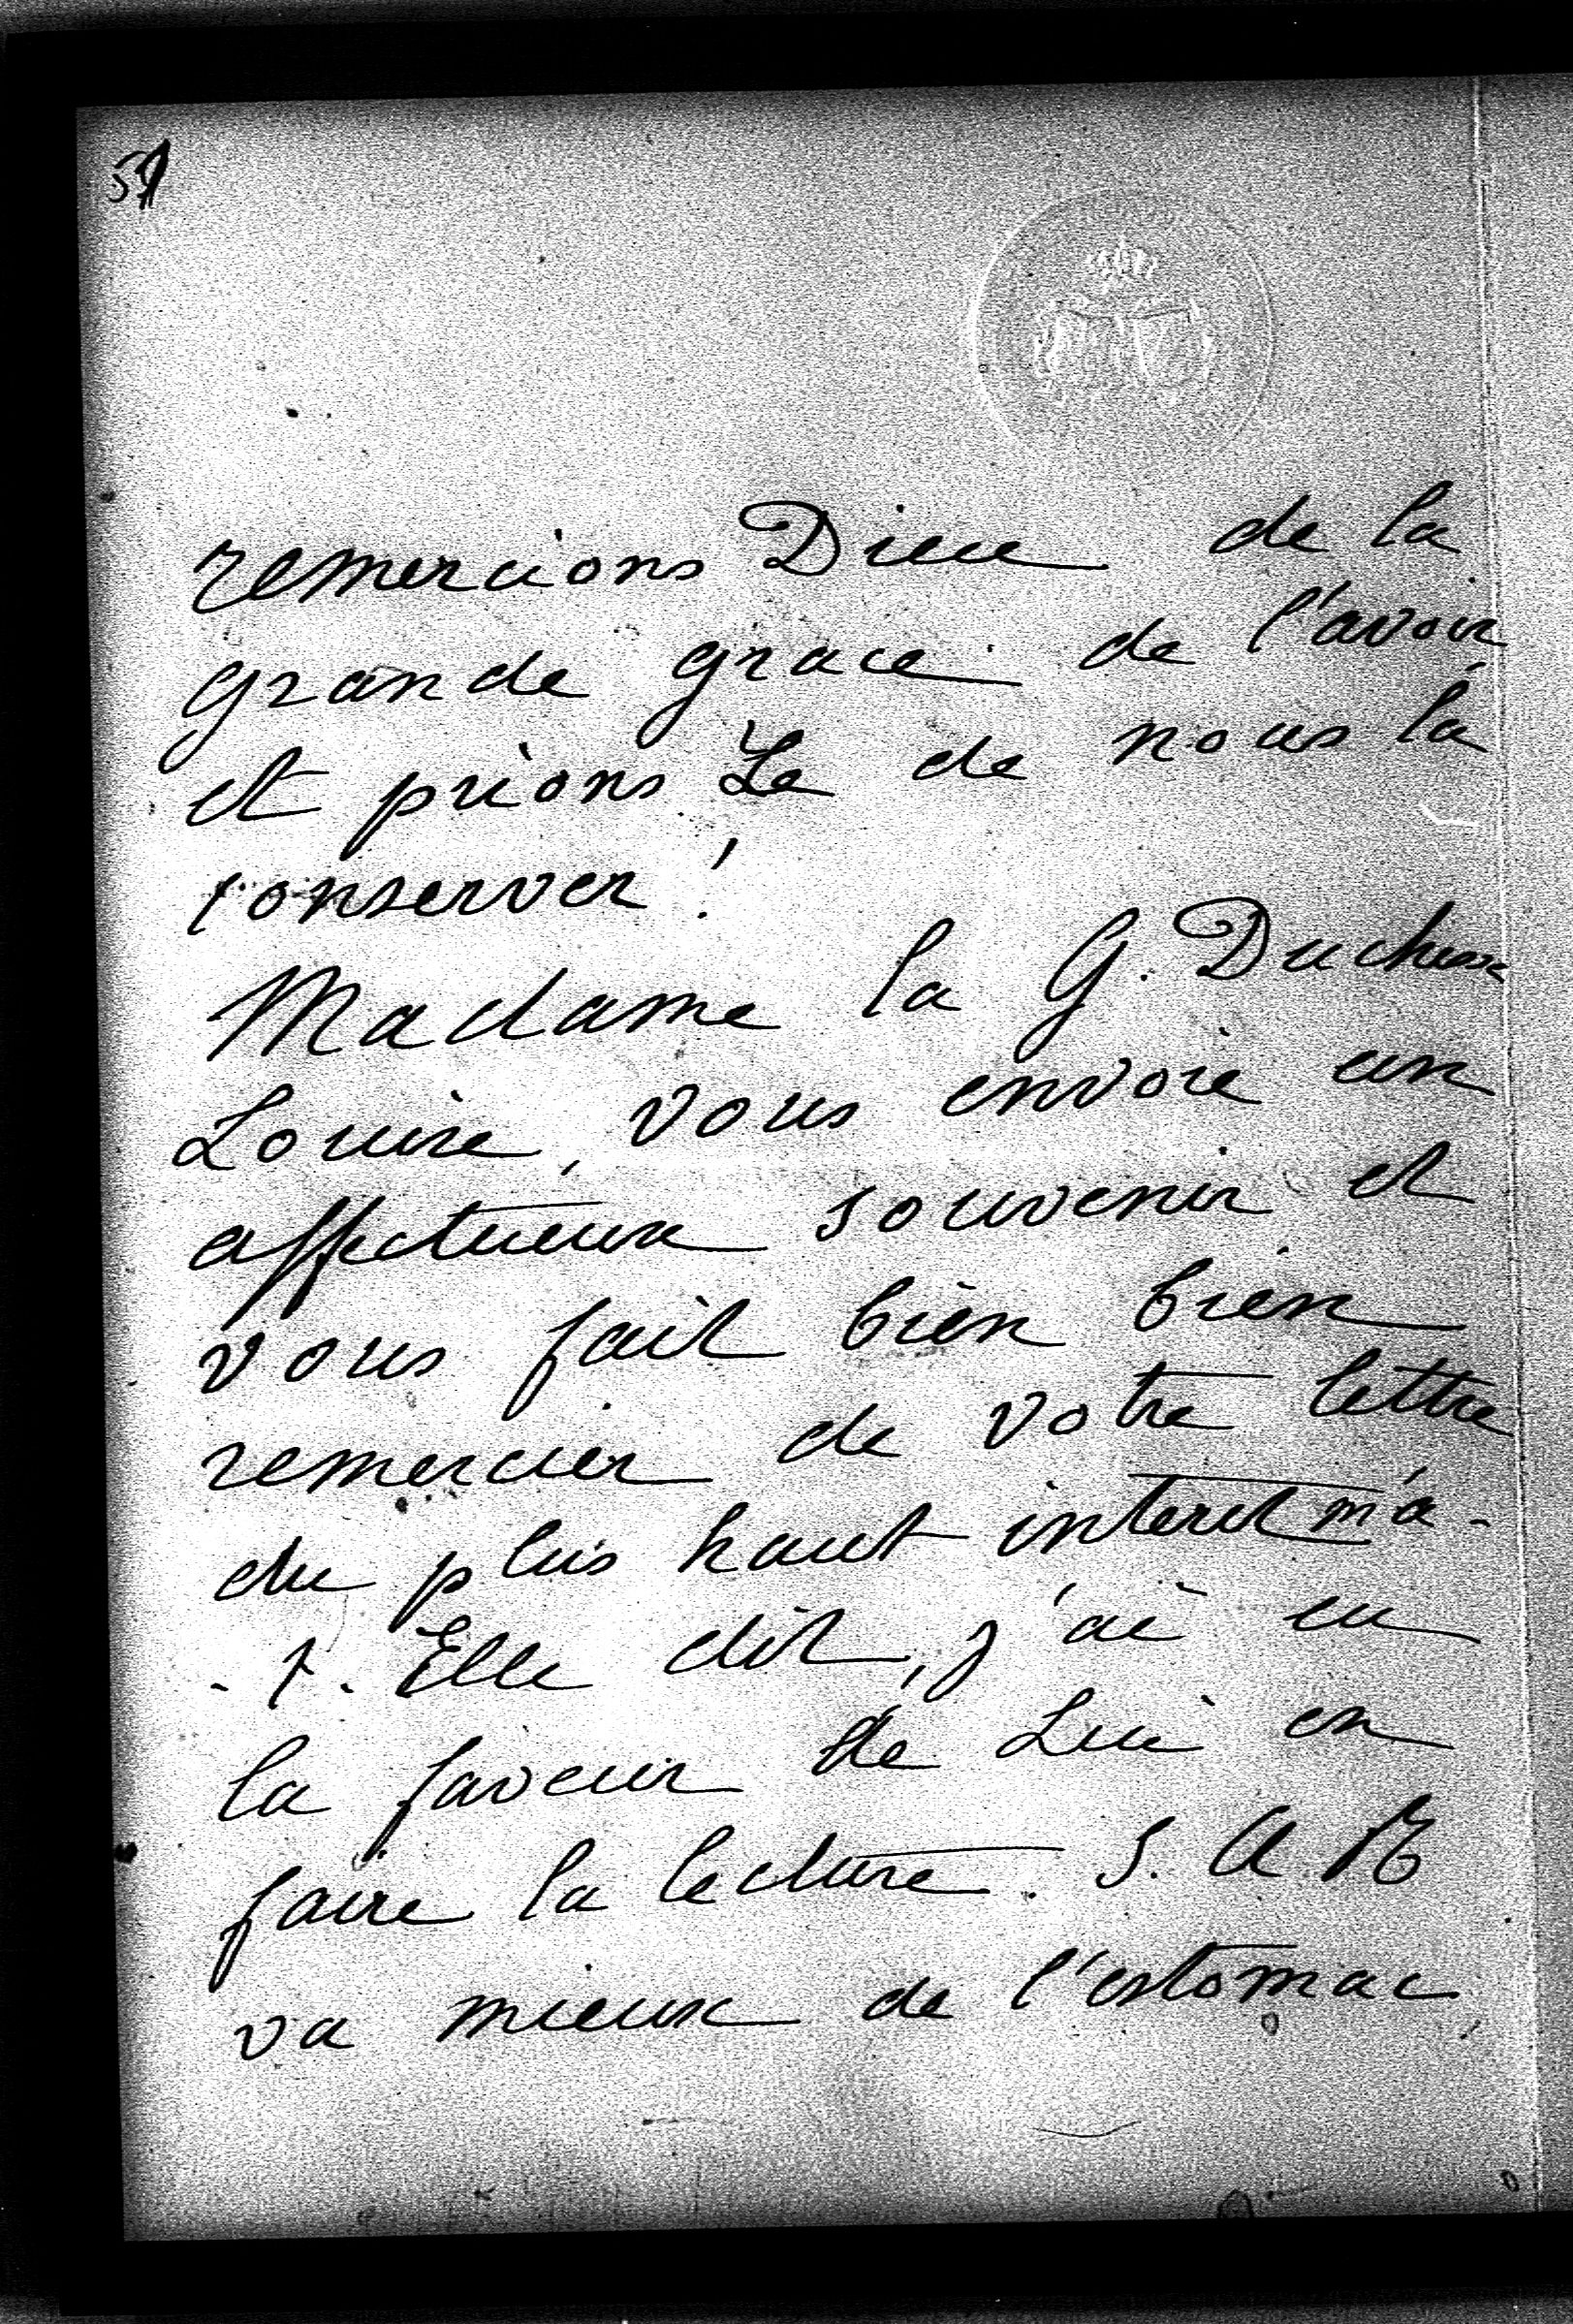 remercions Dieu de la
grande grace de l'avoir
et prions Le de nous la
conserver!
Madame la G. Duchesse
Louise, vous envoie un
affectueux souvenir et
vous fait bien bien
remercier de votre lettre
du plus haut interet m'a-
-t-Elle dit, j'ai eu
la faveur de Lui en
faire la lecture. S. A R
va mieux de l'estomac